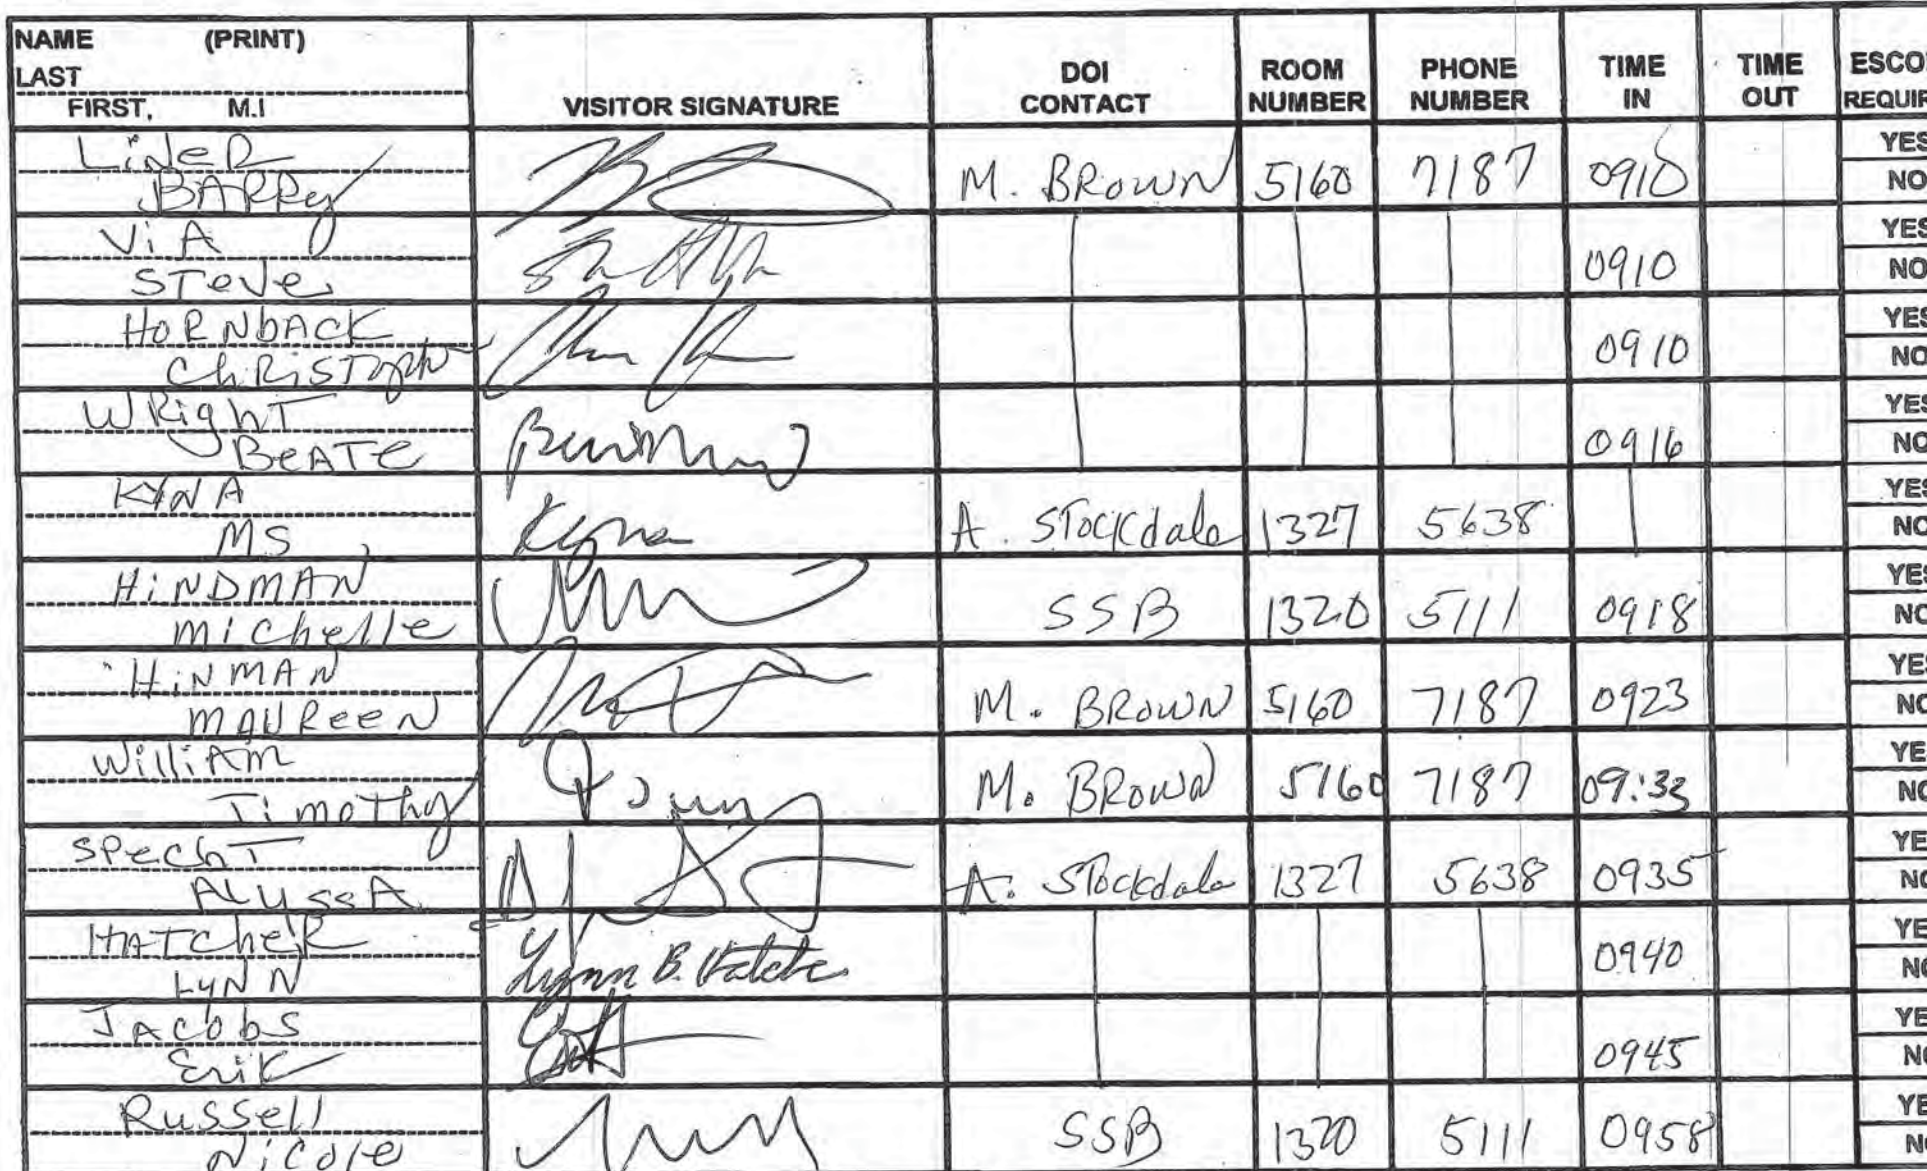 NAME (PRINT)
LAST
FIRST, M.I
VISITOR SIGNATURE
DOI CONTACT
ROOM NUMBER
PHONE NUMBER
TIME IN
TIME OUT
LiNeR
BARRey M. BROWN 5160 7187 0910 YES NO
ViA
STeVe 0910 YES NO
HORNbACK
ChRiSToph 0910 YES NO
WRighT
BeATe 0916 YES NO
KYNA
MS Kyna A. STockdale 1327 5638 YES NO
HiNDMAN
Michelle SSB 1320 5111 0918 YES NO
HiNMAN
MAUReeN M. BROWN 5160 7187 0923
WilliAm
Timothy M. BROWN 5160 7187 09:33
SPechT
AlyssA A. STockdale 1327 5638 0935
HATCheR
LyNN Lynn B. Hatche 0940
JAcobS
Erik 0945
Russell
Nicole SSB 1320 5111 0958